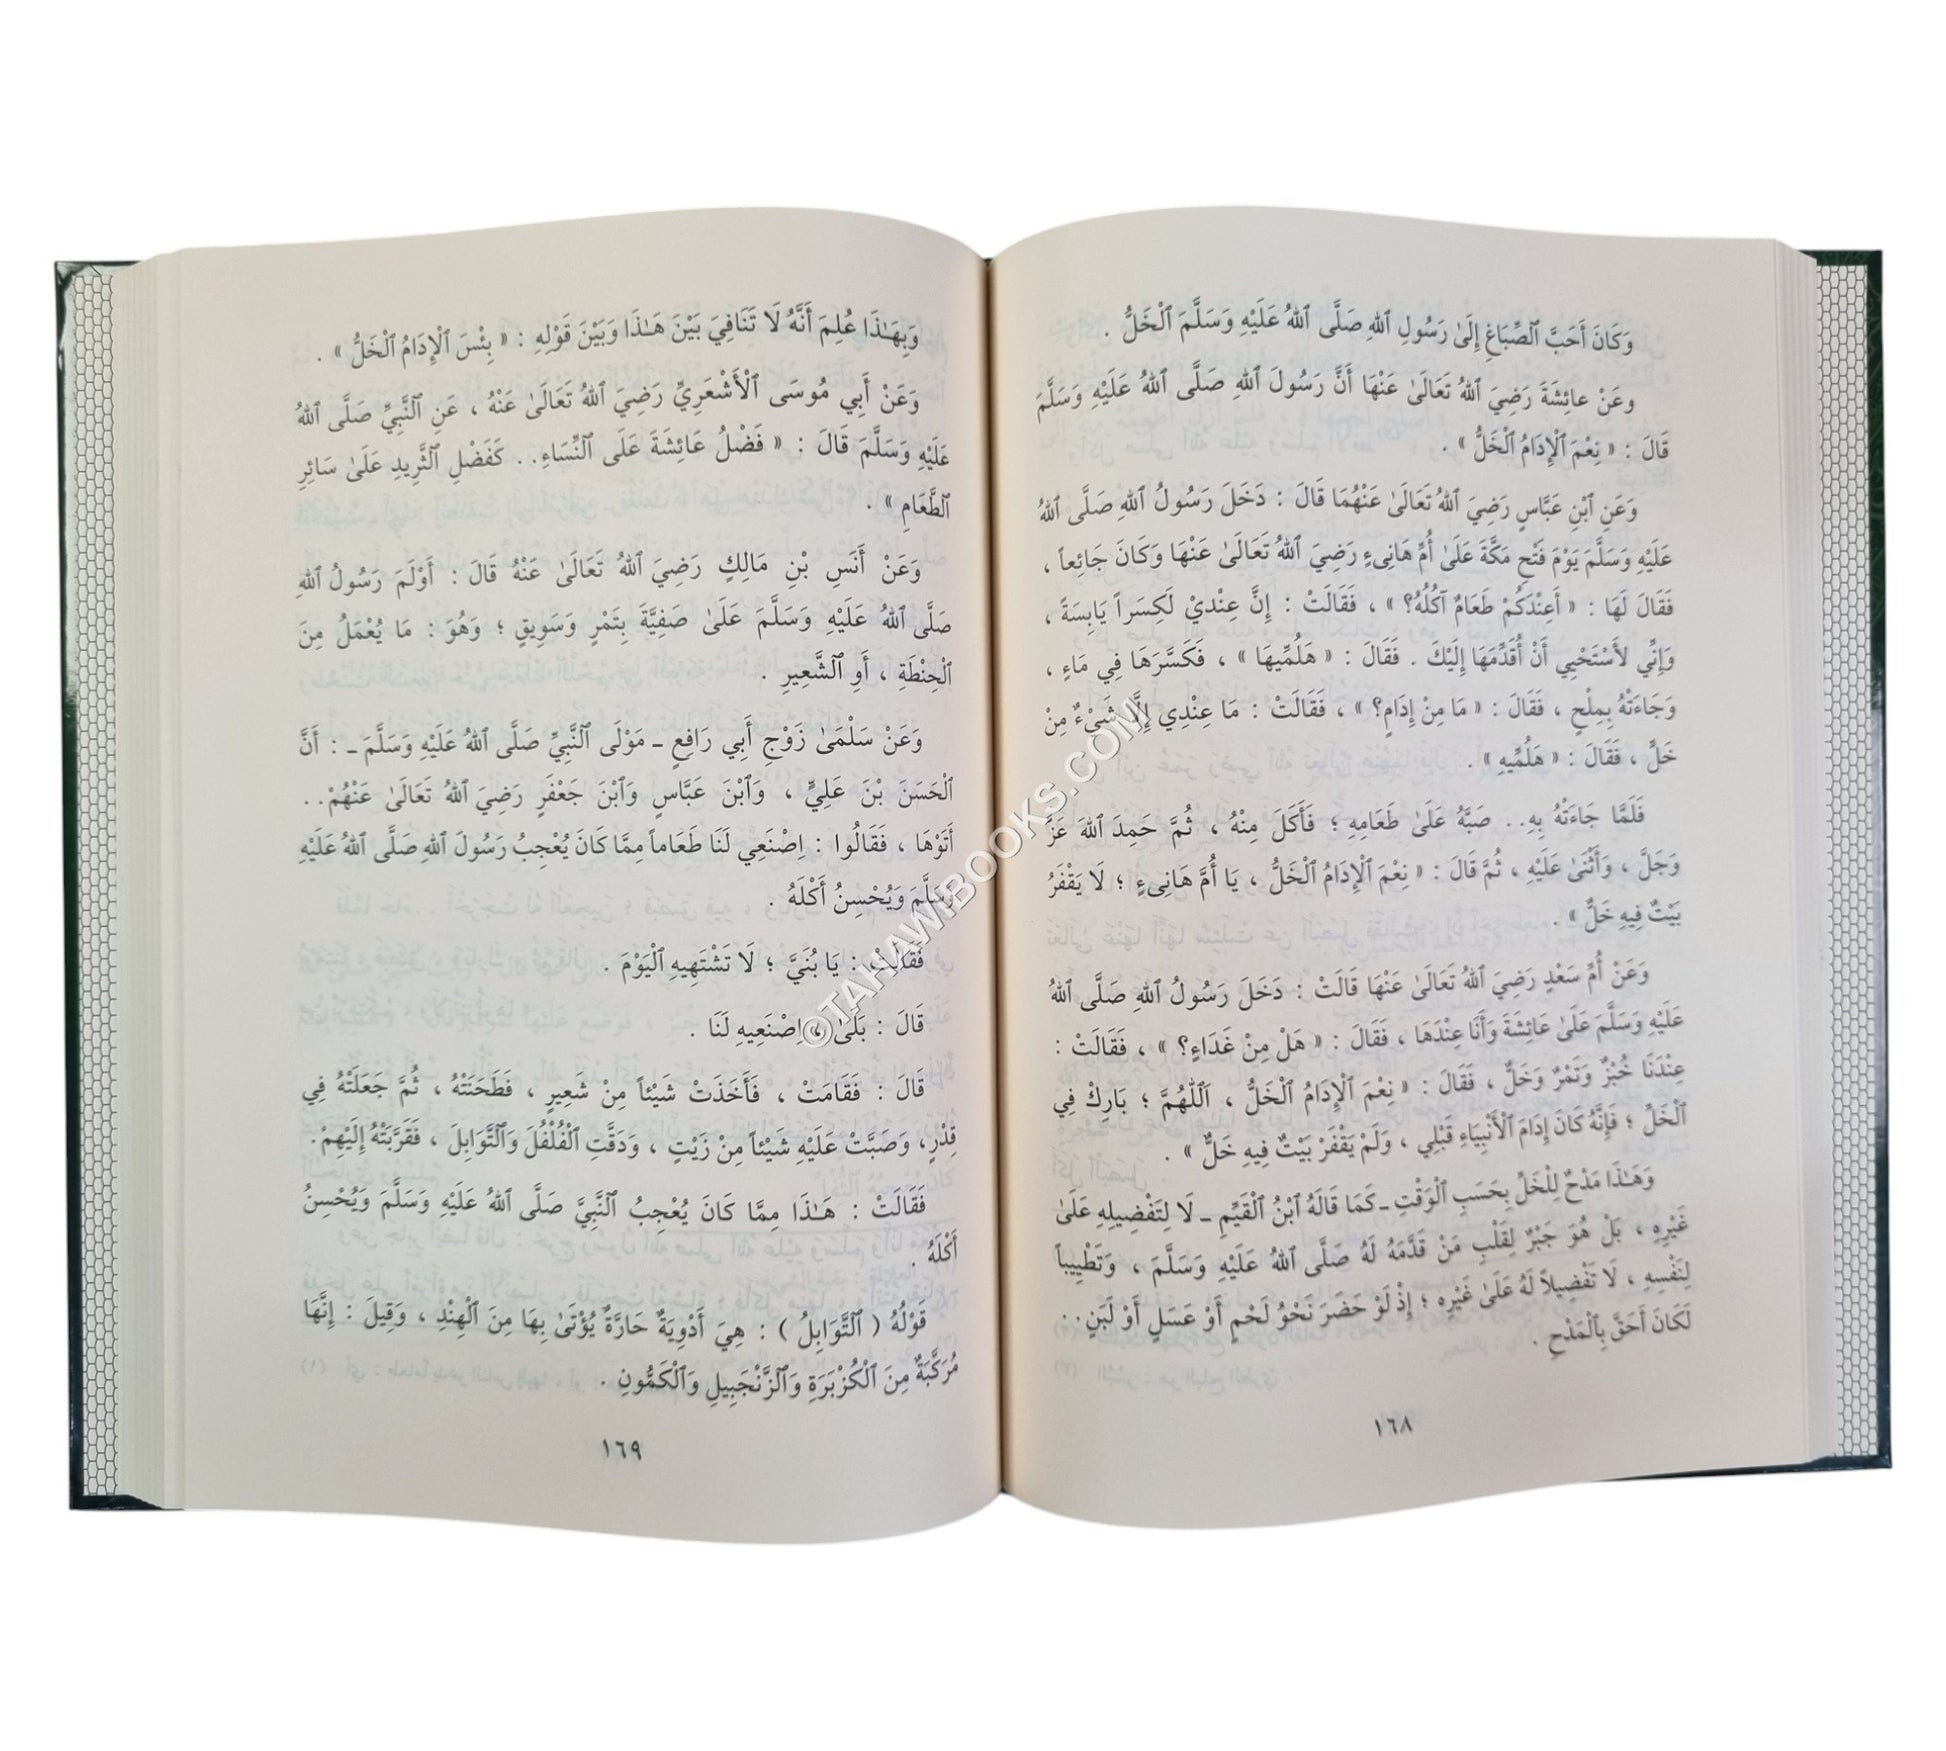 وَكَانَ أَحَبَّ ٱلصِّبَاغِ إِلَىٰ رَسُولِ ٱللهِ صَلَّى ٱللهُ عَلَيْهِ وَسَلَّمَ ٱلْخَلُّ .
وعَنْ عائِشَةَ رَضِيَ ٱللهُ تَعَالَىٰ عَنْهَا أَنَّ رَسُولَ ٱللهِ صَلَّى ٱللهُ عَلَيْهِ وَسَلَّمَ
قَالَ : « نِعْمَ ٱلْإِدَامُ ٱلْخَلُّ » .
وَعَنِ ٱبْنِ عَبَّاسٍ رَضِيَ ٱللهُ تَعَالَىٰ عَنْهُمَا قَالَ : دَخَلَ رَسُولُ ٱللهِ صَلَّى ٱللهُ
عَلَيْهِ وَسَلَّمَ يَوْمَ فَتْحِ مَكَّةَ عَلَىٰ أُمِّ هَانِىءٍ رَضِيَ ٱللهُ تَعَالَىٰ عَنْهَا وَكَانَ جَائِعاً ،
فَقَالَ لَهَا : « أَعِنْدَكُمْ طَعَامٌ آكُلُهُ؟ » ، فَقَالَتْ : إِنَّ عِنْدِيْ لَكِسَراً يَابِسَةً ،
وَإِنِّي لأَسْتَحْيِي أَنْ أُقَدِّمَهَا إِلَيْكَ . فَقَالَ : « هَلُمِّيهَا » ، فَكَسَّرَهَا فِي مَاءٍ ،
وَجَاءَتْهُ بِمِلْحٍ ، فَقَالَ : « مَا مِنْ إِدَامٍ؟ » ، فَقَالَتْ : مَا عِنْدِي إِلَّا شَيْءٌ مِنْ
خَلٍّ ، فَقَالَ : « هَلُمِّيهِ » .
فَلَمَّا جَاءَتْهُ بِهِ.. صَبَّهُ عَلَىٰ طَعَامِهِ ؛ فَأَكَلَ مِنْهُ ، ثُمَّ حَمِدَ ٱللهَ عَزَّ
وَجَلَّ ، وَأَثْنَىٰ عَلَيْهِ ، ثُمَّ قَالَ : « نِعْمَ ٱلْإِدَامُ ٱلْخَلُّ ، يَا أُمَّ هَانِىءٍ ؛ لَا يَقْفَرُ
بَيْتٌ فِيهِ خَلٌّ » .
وَعَنْ أُمِّ سَعْدٍ رَضِيَ ٱللهُ تَعَالَىٰ عَنْهَا قَالَتْ : دَخَلَ رَسُولُ ٱللهِ صَلَّى ٱللهُ
عَلَيْهِ وَسَلَّمَ عَلَىٰ عَائِشَةَ وَأَنَا عِنْدَهَا ، فَقَالَ : « هَلْ مِنْ غَدَاءٍ؟ » ، فَقَالَتْ :
عِنْدَنَا خُبْزٌ وَتَمْرٌ وَخَلٌّ ، فَقَالَ : « نِعْمَ ٱلْإِدَامُ ٱلْخَلُّ ، اَللّٰهُمَّ ؛ بَارِكْ فِي
ٱلْخَلِّ ؛ فَإِنَّهُ كَانَ إِدَامَ ٱلْأَنْبِيَاءِ قَبْلِي ، وَلَمْ يَقْفَرْ بَيْتٌ فِيهِ خَلٌّ » .
وَهَـٰذَا مَدْحٌ لِلْخَلِّ بِحَسَبِ ٱلْوَقْتِ ـ كَمَا قَالَهُ ٱبْنُ ٱلْقَيِّمِ ـ لَا لِتَفْضِيلِهِ عَلَىٰ
غَيْرِهِ ، بَلْ هُوَ جَبْرٌ لِقَلْبِ مَنْ قَدَّمَهُ لَهُ صَلَّى ٱللهُ عَلَيْهِ وَسَلَّمَ ، وَتَطْيِيباً
لِنَفْسِهِ ، لَا تَفْضِيلاً لَهُ عَلَىٰ غَيْرِهِ ؛ إِذْ لَوْ حَضَرَ نَحْوُ لَحْمٍ أَوْ عَسَلٍ أَوْ لَبَنٍ..
لَكَانَ أَحَقَّ بِٱلْمَدْحِ .
١٦٨
وَبِهَـٰذَا عُلِمَ أَنَّهُ لَا تَنَافِيَ بَيْنَ هَـٰذَا وَبَيْنَ قَوْلِهِ : « بِئْسَ ٱلْإِدَامُ ٱلْخَلُّ » .
وَعَنْ أَبِي مُوسَى ٱلْأَشْعَرِيِّ رَضِيَ ٱللهُ تَعَالَىٰ عَنْهُ ، عَنِ ٱلنَّبِيِّ صَلَّى ٱللهُ
عَلَيْهِ وَسَلَّمَ قَالَ : « فَضْلُ عَائِشَةَ عَلَى ٱلنِّسَاءِ.. كَفَضْلِ ٱلثَّرِيدِ عَلَىٰ سَائِرِ
ٱلطَّعَامِ » .
وَعَنْ أَنَسِ بْنِ مَالِكٍ رَضِيَ ٱللهُ تَعَالَىٰ عَنْهُ قَالَ : أَوْلَمَ رَسُولُ ٱللهِ
صَلَّى ٱللهُ عَلَيْهِ وَسَلَّمَ عَلَىٰ صَفِيَّةَ بِتَمْرٍ وَسَوِيقٍ ؛ وَهُوَ : مَا يُعْمَلُ مِنَ
ٱلْحِنْطَةِ ، أَوِ ٱلشَّعِيرِ .
وَعَنْ سَلْمَىٰ زَوْجِ أَبِي رَافِعٍ ـ مَوْلَى ٱلنَّبِيِّ صَلَّى ٱللهُ عَلَيْهِ وَسَلَّمَ ـ : أَنَّ
ٱلْحَسَنَ بْنَ عَلِيٍّ ، وَٱبْنَ عَبَّاسٍ وَٱبْنَ جَعْفَرٍ رَضِيَ ٱللهُ تَعَالَىٰ عَنْهُمْ..
أَتَوْهَا ، فَقَالُوا : اِصْنَعِي لَنَا طَعَاماً مِمَّا كَانَ يُعْجِبُ رَسُولَ ٱللهِ صَلَّى ٱللهُ عَلَيْهِ
وَسَلَّمَ وَيُحْسِنُ أَكْلَهُ .
فَقَالَتْ : يَا بُنَيَّ ؛ لَا تَشْتَهِيهِ ٱلْيَوْمَ .
قَالَ : بَلَىٰ ، اِصْنَعِيهِ لَنَا .
قَالَ : فَقَامَتْ ، فَأَخَذَتْ شَيْئاً مِنْ شَعِيرٍ ، فَطَحَنَتْهُ ، ثُمَّ جَعَلَتْهُ فِي
قِدْرٍ ، وَصَبَّتْ عَلَيْهِ شَيْئاً مِنْ زَيْتٍ ، وَدَقَّتِ ٱلْفُلْفُلَ وَٱلتَّوَابِلَ ، فَقَرَّبَتْهُ إِلَيْهِمْ.
فَقَالَتْ : هَـٰذَا مِمَّا كَانَ يُعْجِبُ ٱلنَّبِيَّ صَلَّى ٱللهُ عَلَيْهِ وَسَلَّمَ وَيُحْسِنُ
أَكْلَهُ .
قَوْلُهُ ( ٱلتَّوَابِلُ ) : هِيَ أَدْوِيَةٌ حَارَّةٌ يُؤْتَىٰ بِهَا مِنَ ٱلْهِنْدِ ، وَقِيلَ : إِنَّهَا
مُرَكَّبَةٌ مِنَ ٱلْكُزْبَرَةِ وَٱلزَّنْجَبِيلِ وَٱلْكَمُّونِ .
١٦٩
©TAHAWIBOOKS.COM